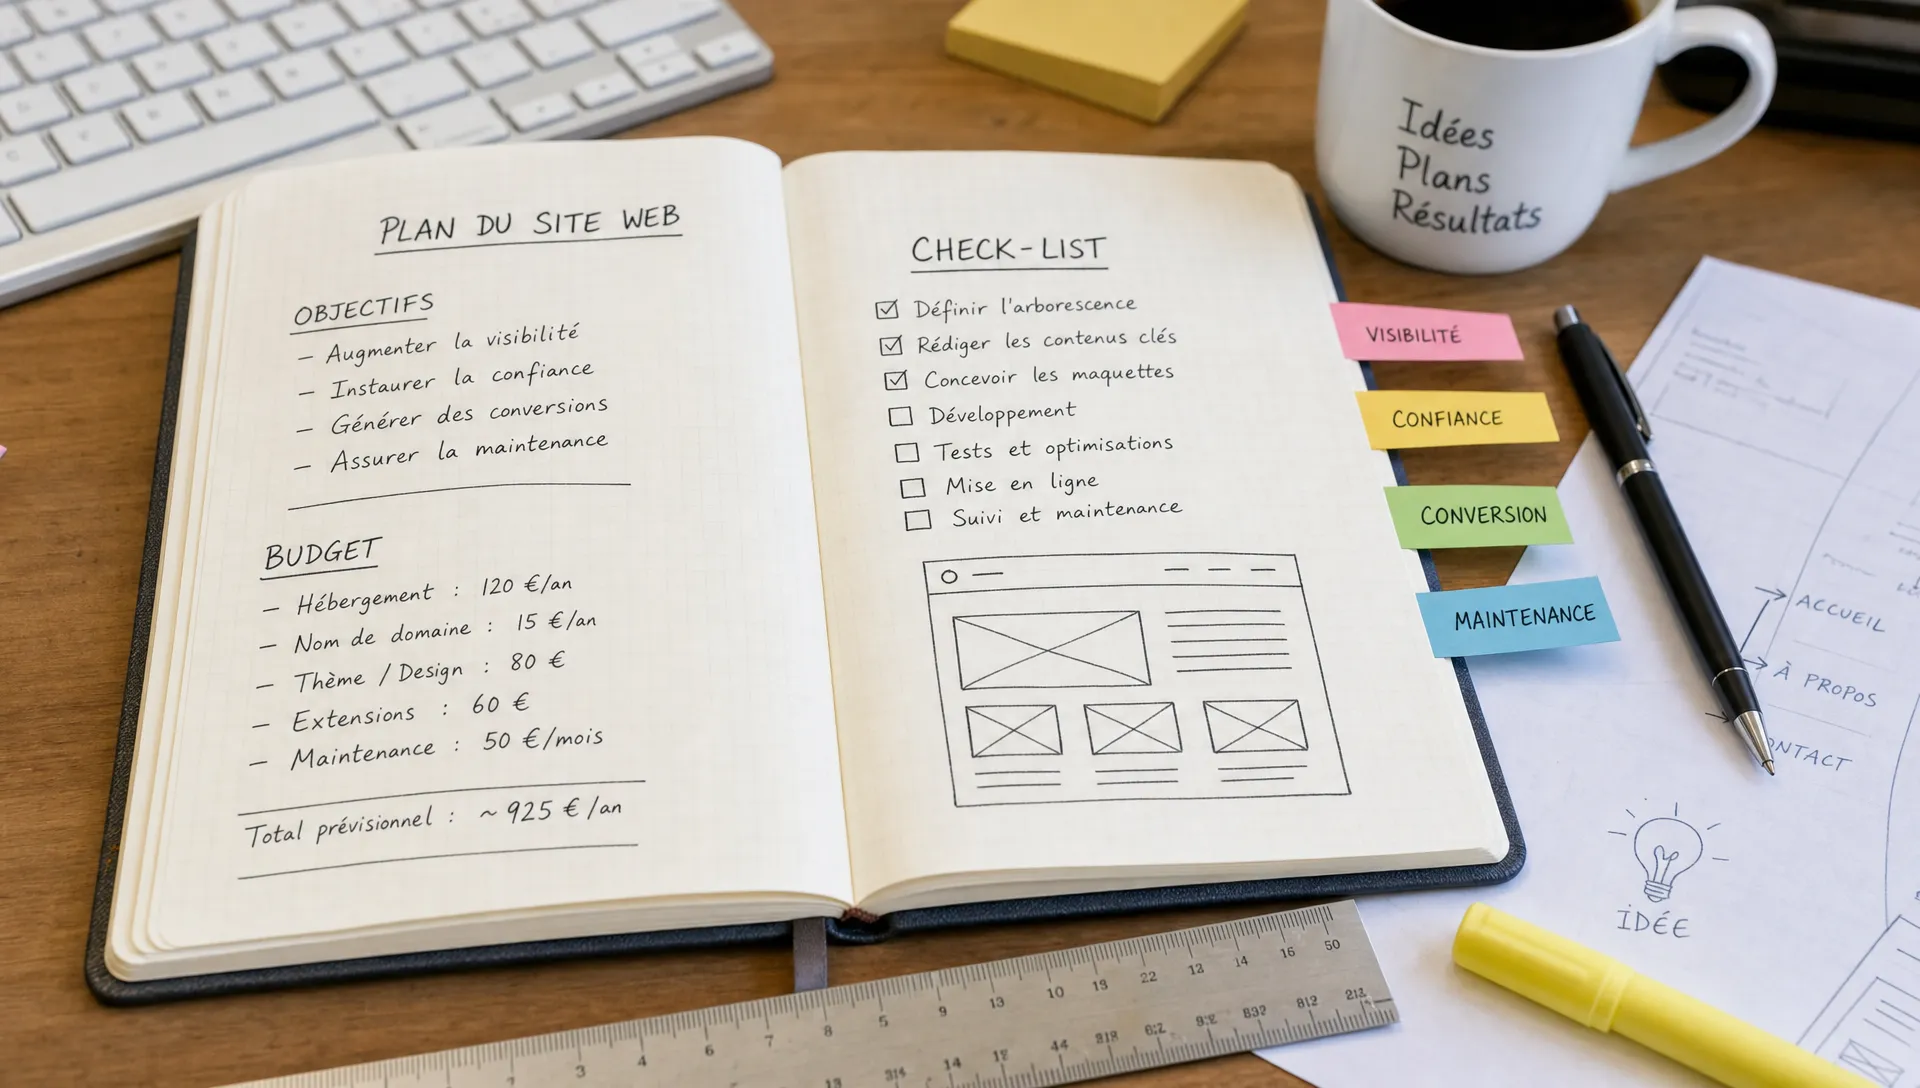 PLAN DU SITE WEB
OBJECTIFS
– Augmenter la visibilité
– Instaurer la confiance
– Générer des conversions
– Assurer la maintenance
BUDGET
– Hébergement : 120 €/an
– Nom de domaine : 15 €/an
– Thème / Design : 80 €
– Extensions : 60 €
– Maintenance : 50 €/mois
Total prévisionnel : ~ 925 €/an
CHECK-LIST
Définir l'arborescence
Rédiger les contenus clés
Concevoir les maquettes
Développement
Tests et optimisations
Mise en ligne
Suivi et maintenance
VISIBILITÉ
CONFIANCE
CONVERSION
MAINTENANCE
Idées
Plans
Résultats
ACCUEIL
À PROPOS
ONTACT
IDÉE
3 4 6 7 8 5 9 13 10 13 22 12 14 16 50